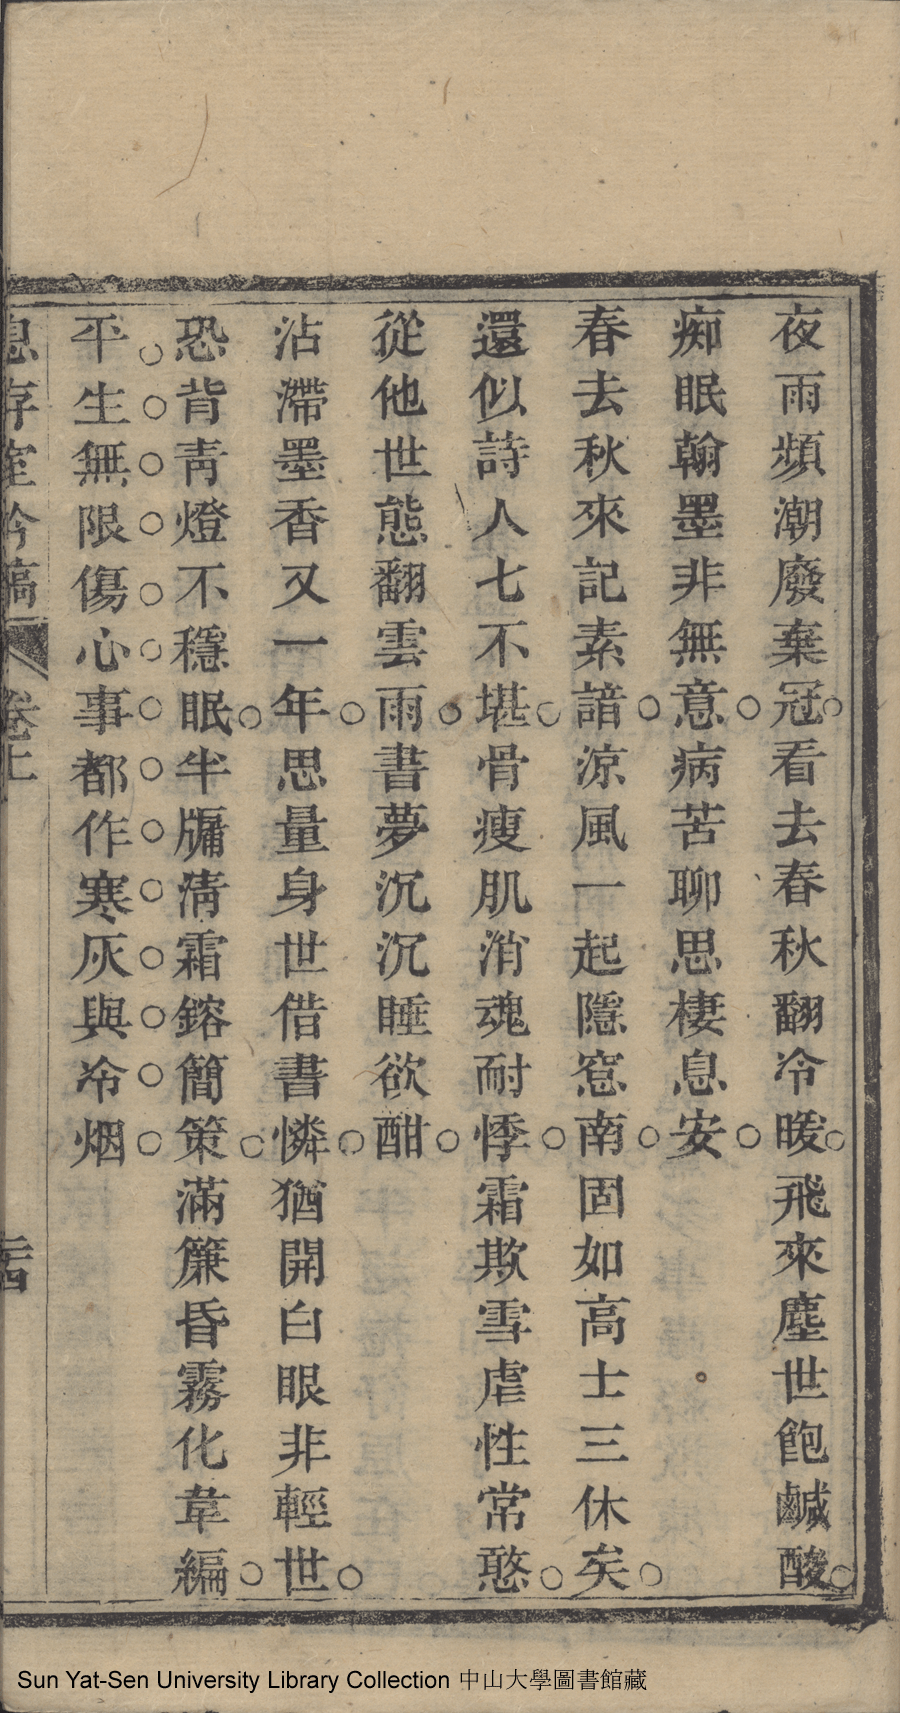 夜雨頻潮廢棄冠○看去春秋翻冷暖○飛來塵世飽鹹酸○
痴眠翰墨非無意○病苦聊思棲息安○
春去秋來記素諳○涼風一起隱窓南○固如高士三休矣○
還似詩人七不堪○骨瘦肌消魂耐悸○霜欺雪虐性常憨○
從他世態翻雲雨○書夢沉沉睡欲酣○
沾滯墨香又一年○思量身世借書憐○猶開白眼非輕世○
恐背青燈不穩眠○半牖清霜鎔簡策○滿簾昏霧化韋編○
平生無限傷心事都作寒灰與冷烟
息存室吟稿 卷上 二十四
Sun Yat-Sen University Library Collection 中山大學圖書館藏